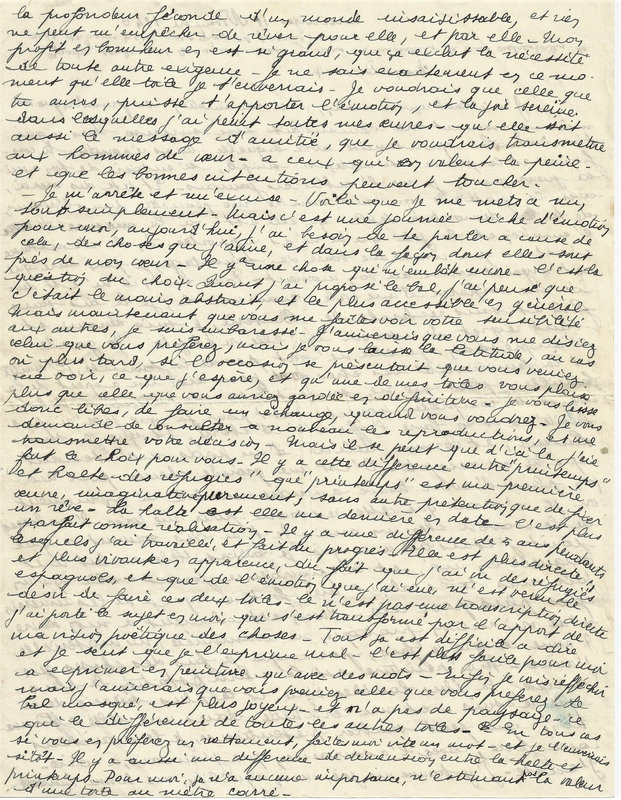 la profondeur féconde d'un monde insaisissable, et rien
ne peut m'empêcher de rêver pour elle, et par elle - Mon
profit en bonheur en est si grand, que ça exclut la nécessité
de toute autre exigence - Je ne sais exactement en ce mo-
ment qu'elle toile je t'enverrais - Je voudrais que celle que
tu auras, puisse t'apporter l'émotion, et la joie sereine
dans lesquelles j'ai peint toutes mes œuvres - qu'elle soit
aussi le message d'amitié, que je voudrais transmettre
aux hommes de cœur - a ceux qui en valent la peine -
et que les bonnes intentions peuvent toucher -
- Je m'arrête et m'excuse - Voilà que je me mets a nu,
tout simplement - Mais c'est une journée riche d'émotion
pour moi, aujourd'hui, j'ai besoin de te parler a cause de
cela, des choses que j'aime, et dans la façon dont elles sont
près de mon cœur - Il y a une chose qui m'embête encore - C'est la
question du choix - Quand j'ai proposé le bal, j'ai pensé que
c'était le moins abstrait, et le plus accessible en général
Mais maintenant que vous me faites voir votre sensibilité
aux autres, je suis embarassé - J'aimerais que vous me disiez
celui que vous préférez, mais je vous laisse la latitude, au cas
où plus tard, si l'occasion se présentait que vous veniez
me voir, ce que j'espère, et qu'une de mes toiles vous plaise
plus que celle que vous auriez gardée en définitive - Je vous laisse
donc libre, de faire un échange, quand vous voudrez - Je vous
demande de consulter a nouveau les reproductions, et me
transmettre votre décision - Mais il se peut que d'ici là j'aie
fait le choix pour vous - Il y a cette différence entre "printemps"
et "halte des réfugiés" que "printemps" est ma première
œuvre, imaginative purement, sans autre prétention que de fixer
un rêve - La halte est elle ma dernière en date - C'est plus
parfait comme réalisation - Il y a une différence de 5 ans pendants
lesquels j'ai travaillé, et fait du progrès - Elle est plus directe,
et plus vivante en apparence, du fait que j'ai vu des réfugiés
espagnols, et que de l'émotion que j'ai eue, m'est venu le
désir de faire ces deux toiles - Ce n'est pas une transcription directe
J'ai porté le sujet en moi, qui s'est transformé par l'apport de
ma vision poétique des choses - Tout ça est difficile a dire
et je sent que je l'exprime mal - C'est plus facile pour moi
a exprimer en peinture qu'avec des mots - Enfin je vais réfléchir
mais j'aimerais que vous preniez celle que vous préférez - Le
bal masqué, est plus joyeux - et n'a pas de paysage - ce
qui le différencie de toutes les autres toiles - En tous cas
si vous en préférez un nettement, faites moi vite un mot - et je l'enverrais
sitôt - Il y a aussi une différence de dimension entre la halte et
printemps - Pour moi, ça n'a aucune importance, n'estimant pas la valeur
d'une toile au mètre carré -